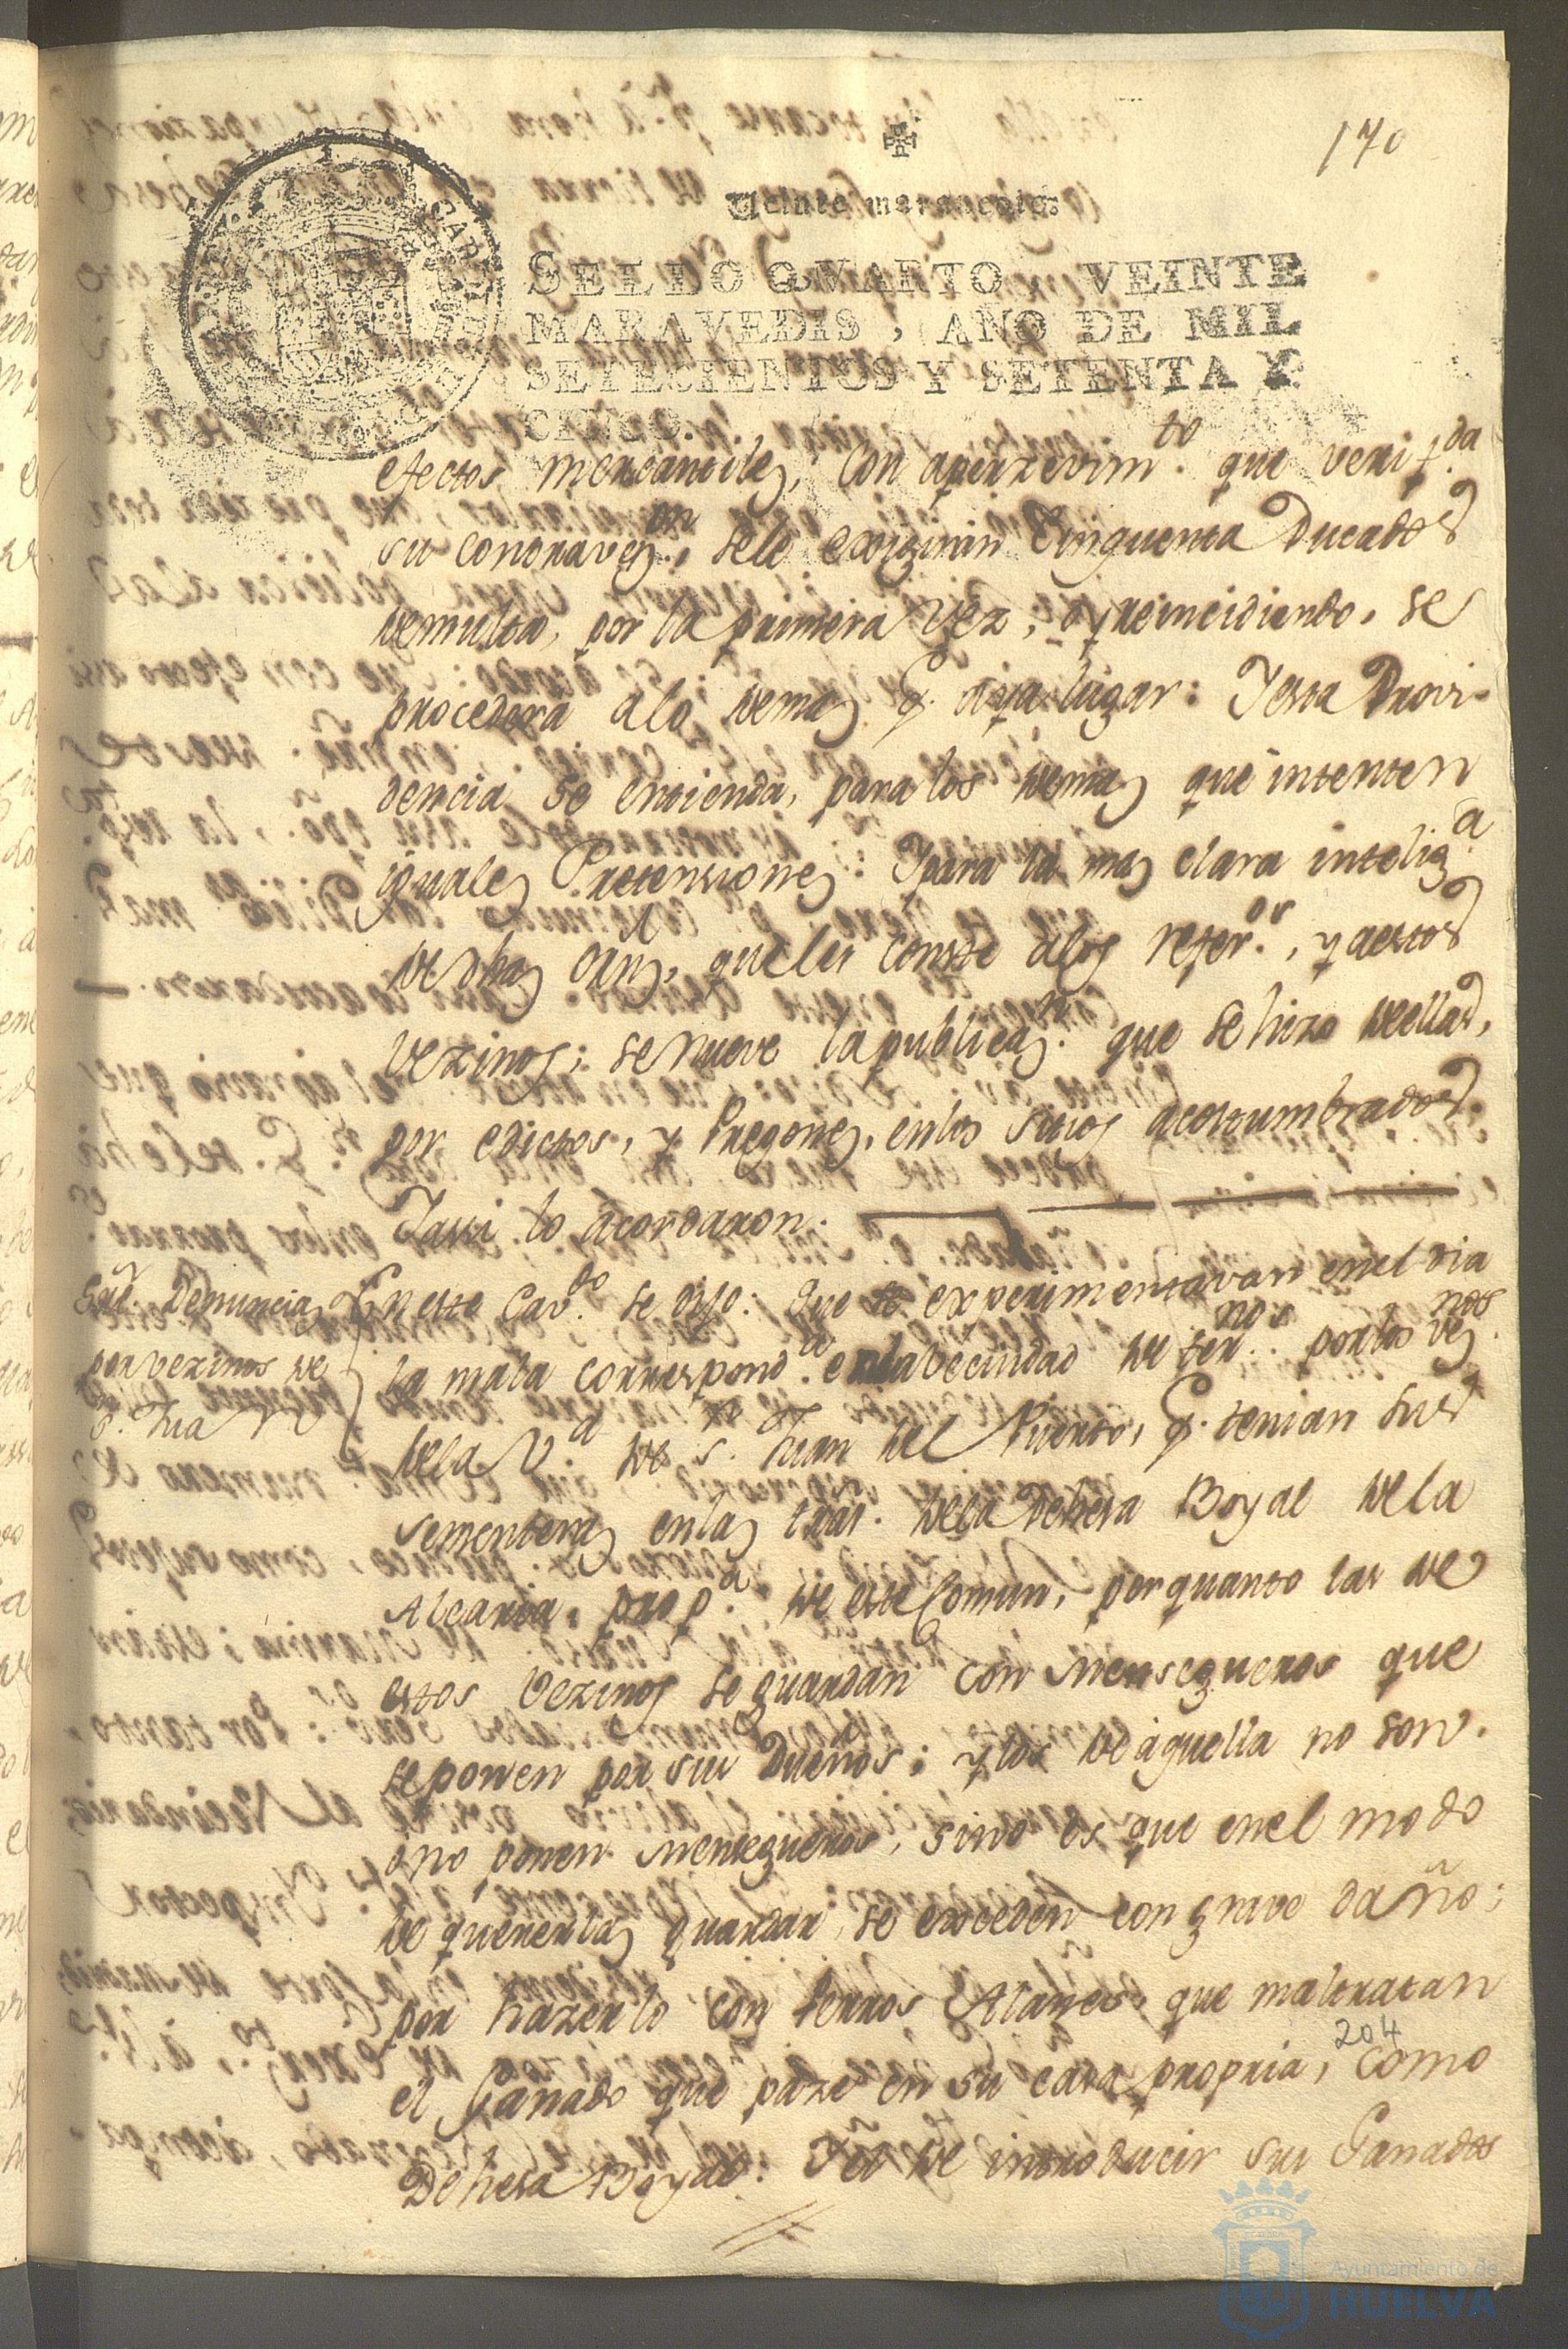 170
Veinte maravedis
SELLO QVARTO, VEINTE
MARAVEDIS, AÑO DE MIL
SETECIENTOS Y SETENTA Y
CINCO.
efectos mercantiles, con aperzevim.to que verif.da
su contraven.on, sele exigirin Cinquenta Ducados
de multa, por la primera vez, y reincidiendo, se
procedera alo demas q. aya lugar: Y esta Provi-
dencia se entienda, para los demas que intenten
iguales Pretensiones: Y para la mas clara inteliga.
de dhas orns, que les conste alos refer.os, y a estos
Vezinos; se nueve la publicaz.n que se hizo de ellas,
por edictos, y Pregones, enlos sitios acostumbrados.
Y assi lo acordaron.
Sre. Denuncias
por vezinos de
S. Jua
En este Cav.do se dijo: Que se experimentavan enel dia
la mala correspond.a enla vecindad de ter.nos por los vez.nos
dela V.a de S.n Juan del Puerto, q. tenian sus
sementeras enlas trrãs. dela Dehesa Boyal dela
Alcaria, prop.a de este Comun, porquanto las de
estos Vezinos se guardan con Mensegueros que
se ponen por sus Dueños; y los de aquella no son.
o no ponen Mensegueros, sino es que enel modo
de quererlas guardar, se exceden con grave daño;
por hazerlo con Perros Alanos, que maltratan
el Ganado que paze en su casa propria, como
204
Dehesa Boyal: Y el de introducir sus Ganados
Ayuntamiento de
HUELVA